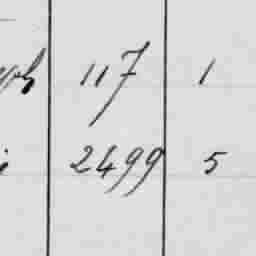 117 1
2499 5